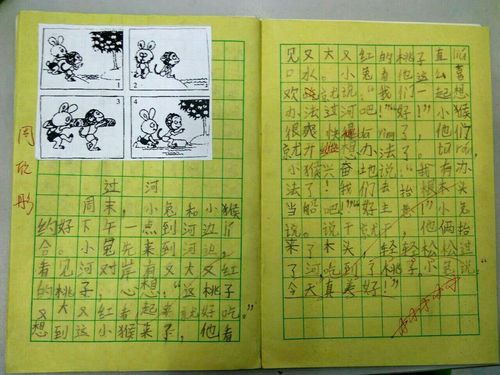 1
2
3
4
周欣彤
过河
周末，小兔和小猴
约好下午一点到河边
会。小兔先来到河边，
看见河对岸有又大又红
的桃子，心想：“这桃子
又大又红看起来就好吃。”
想到这小猴来了，他看
见又大又红的桃子直liú
口水。小兔看他这么喜
欢就说：“我们一起想
办法过河吧！”“好！”小猴
很爽快
了，他们
就开始想办法了。
小猴兴奋地说：“我有办
法了！我们去抬根木头
当船吧！”“好主意！”小兔
说。说干就干，他俩抬
来了木头，轻轻松松过
了河吃到了桃子小兔说：
“今天真美好！”